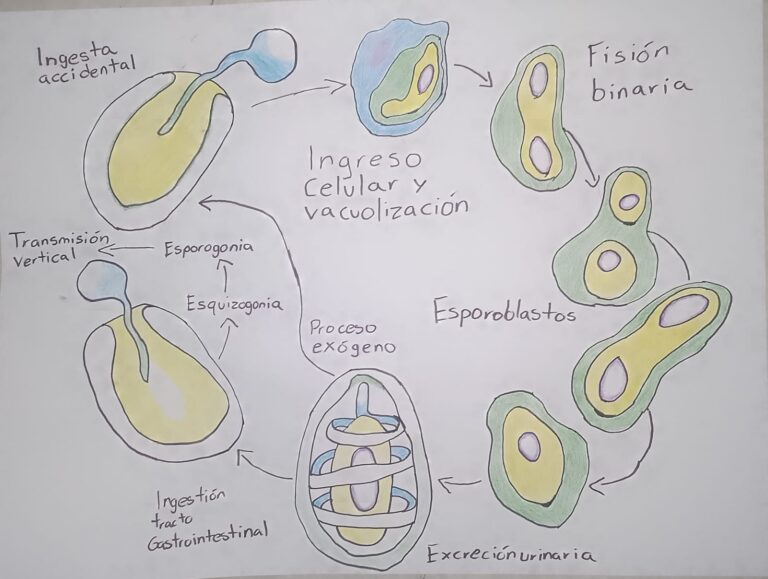 Ingesta
accidental
Ingreso
celular y
vacuolización
Fisión
binaria
Esporoblastos
Excreción urinaria
Proceso
exógeno
Ingestión
tracto
Gastrointestinal
Esquizogonia
Esporogonia
Transmisión
vertical